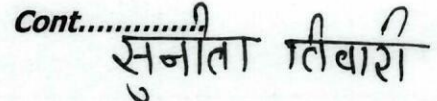 Cont..............
सुनीता तिवारी